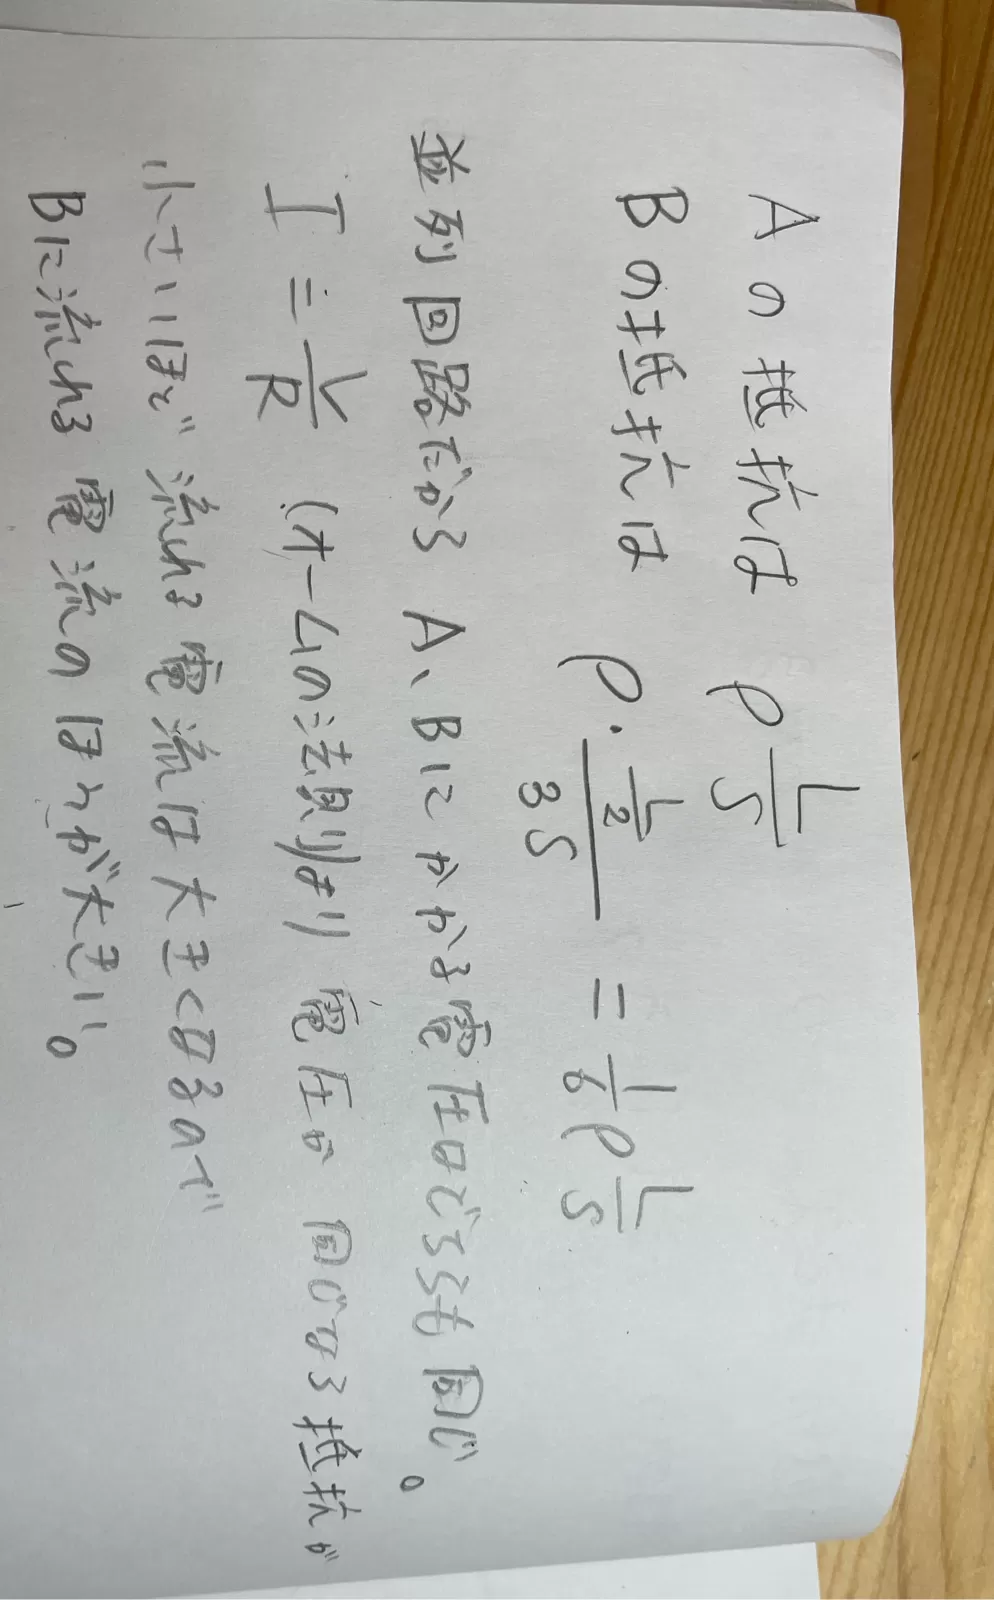 Aの抵抗は ρ L/S
Bの抵抗は ρ・(L/2)/3S = 1/6 ρ L/S
並列回路だから A、Bにかかる電圧はどちらも同じ。
I = V/R (オームの法則)より 電圧が 同じなら抵抗が
小さいほど 流れる電流は大きくなるので
Bに流れる電流の ほうが大きい。